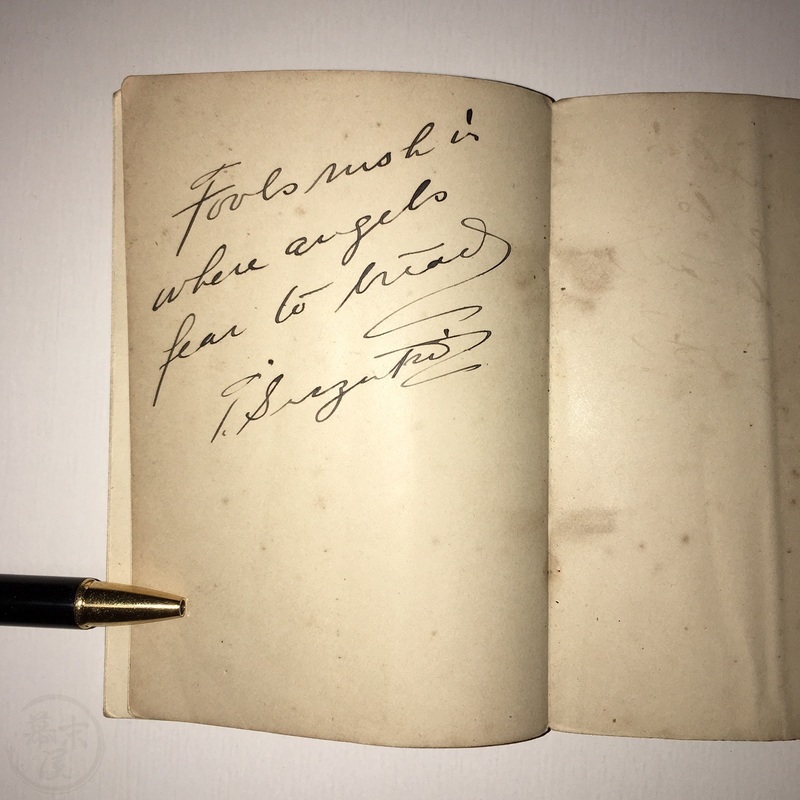 Fools rush in
where angels
fear to tread
T. Suzuki
幕末屋